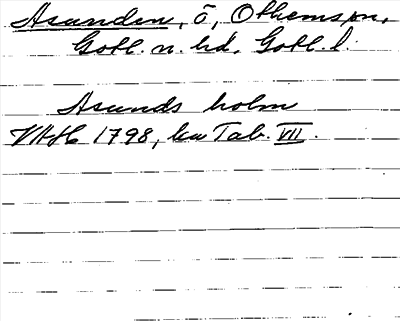 Asunden, ö, Othems sn,
Gotl. n. hd, Gotl. l.
Asunds holm
VAH 1798, ka Tab. VII.